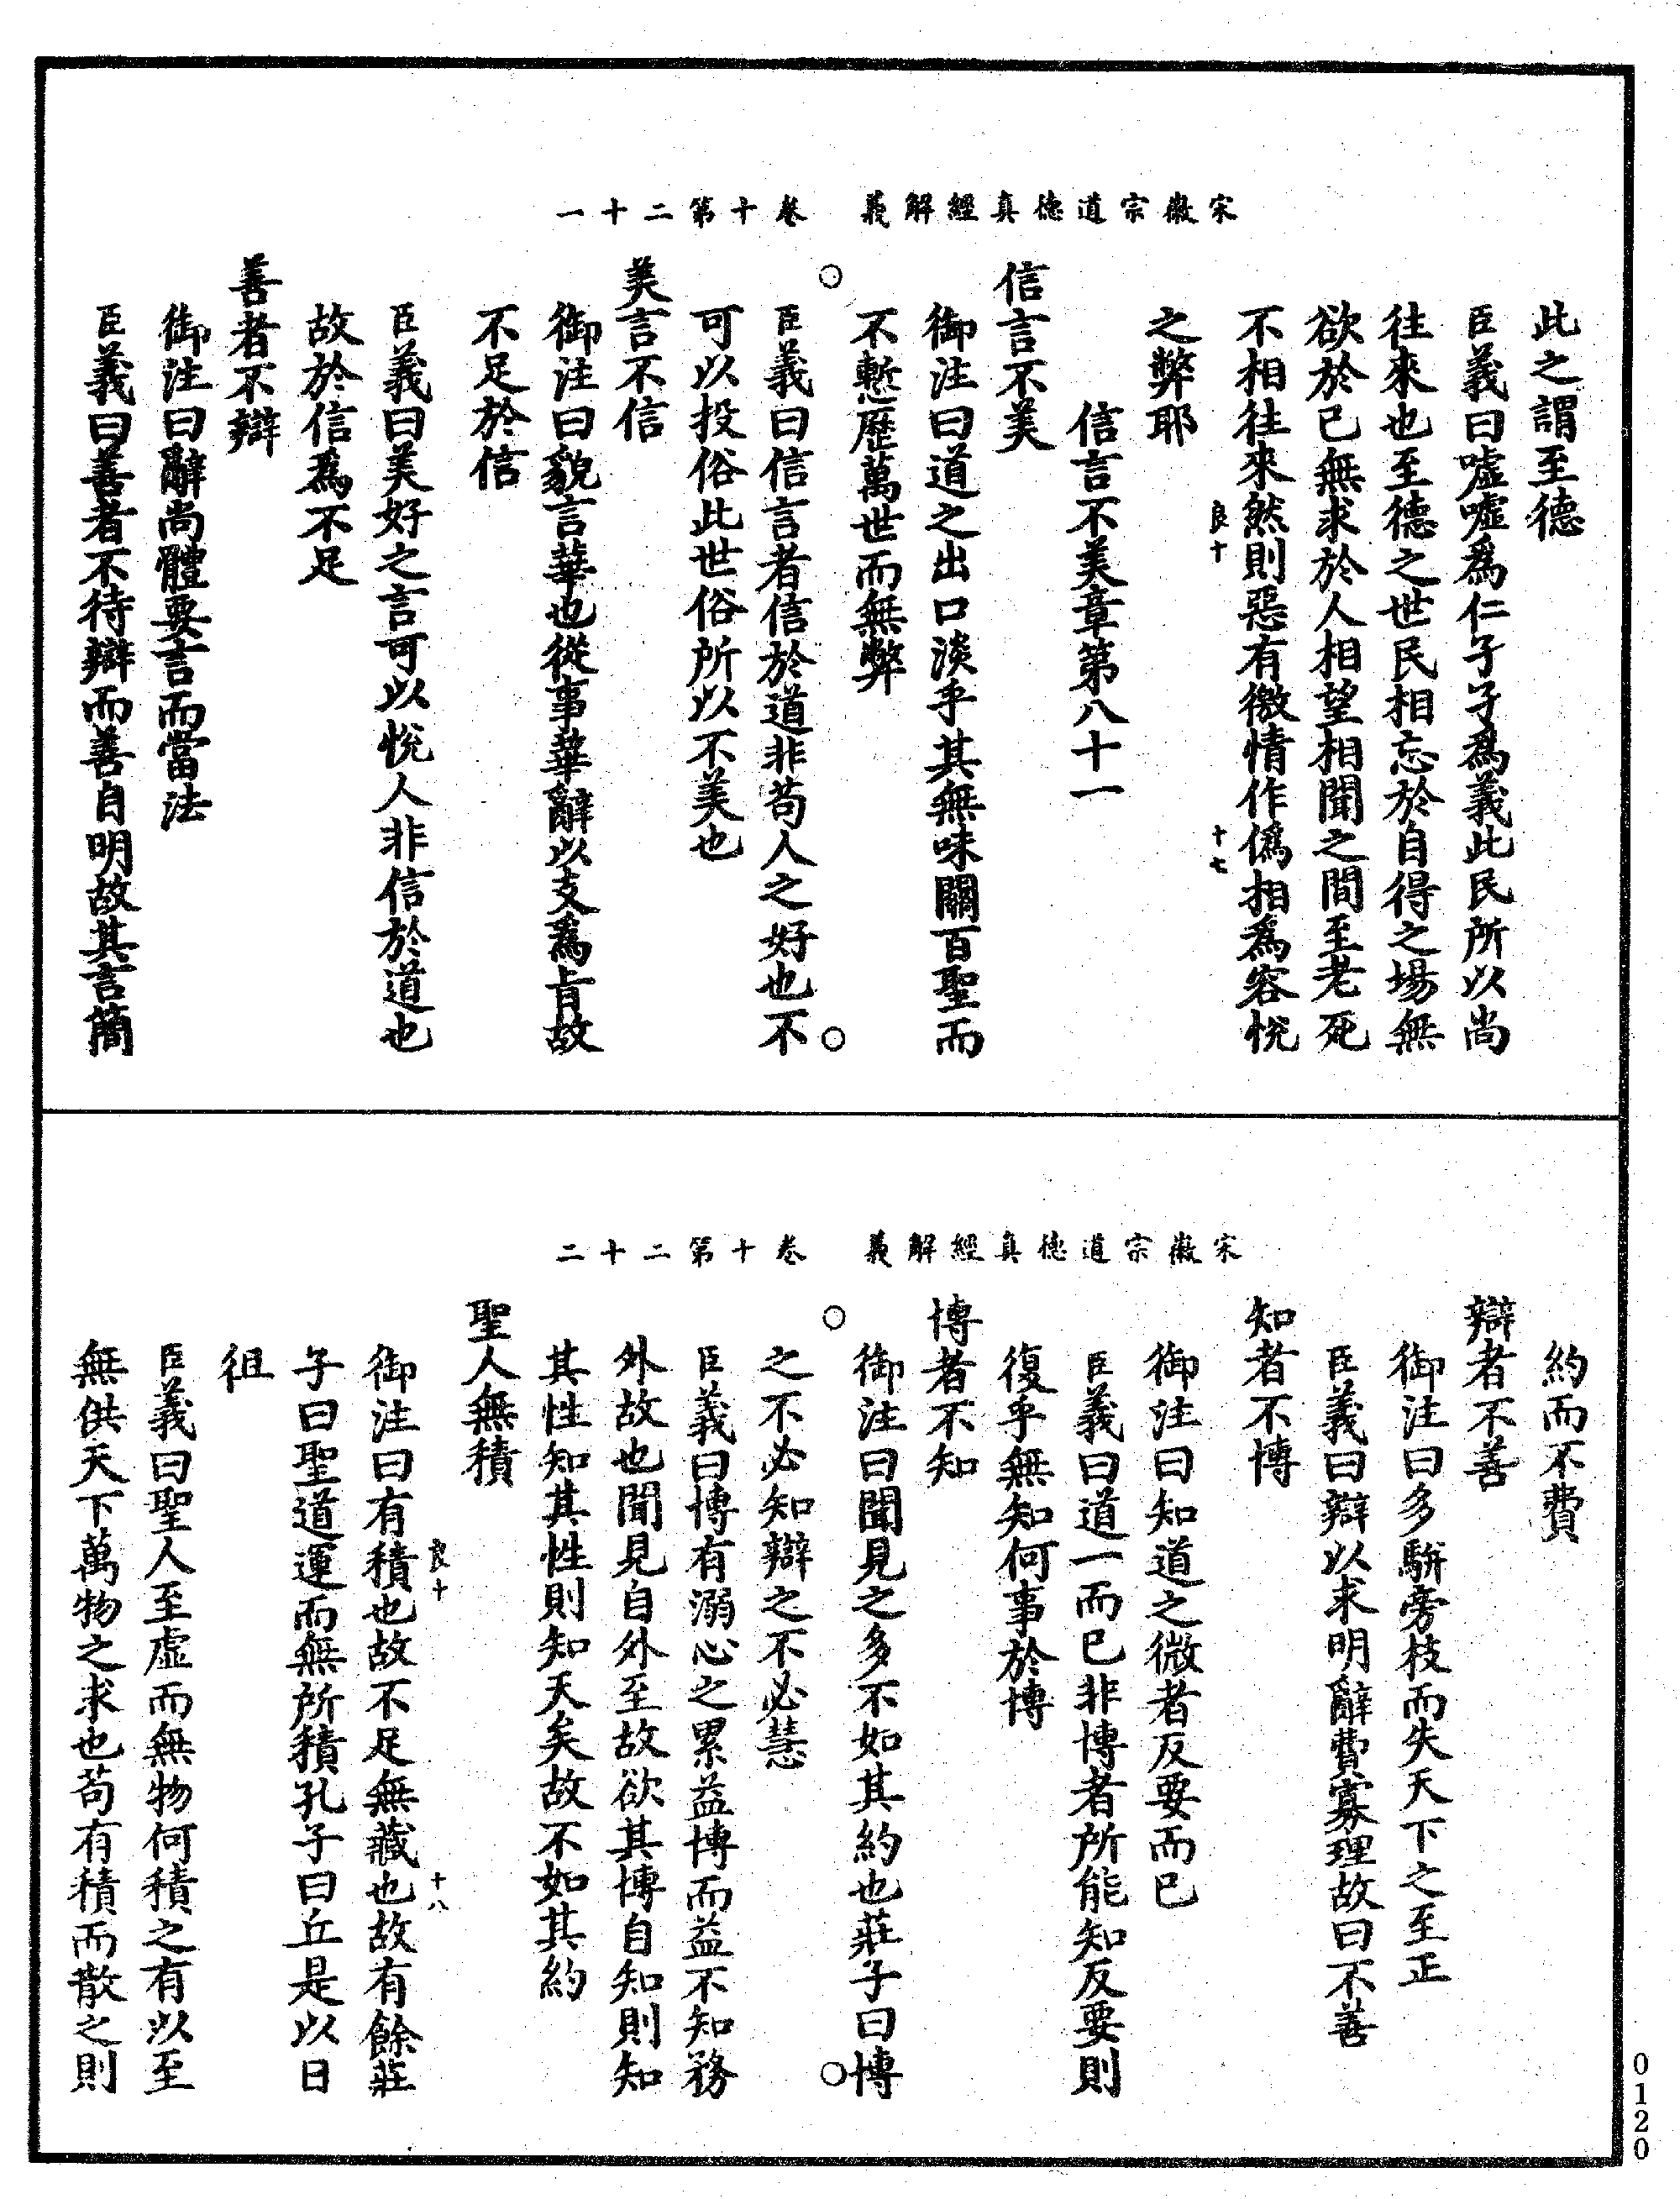 宋徽宗道德真經解義　卷十第二十一
此之謂至德
臣義曰噓噓爲仁孑孑爲義此民所以尚
往來也至德之世民相忘於自得之場無
欲於已無求於人相望相聞之間至老死
不相往來然則惡有徼情作僞相爲容悅
良十　十七
之弊耶
信言不美章第八十一
信言不美
御注曰道之出口淡乎其無味關百聖而
不慙歷萬世而無弊
臣義曰信言者信於道非苟人之好也不
可以投俗此世俗所以不美也
美言不信
御注曰貌言華也從事華辭以支爲旨故
不足於信
臣義曰美好之言可以悅人非信於道也
故於信爲不足
善者不辯
御注曰辭尚體要言而當法
臣義曰善者不待辯而善自明故其言簡
宋徽宗道德真經解義　卷十第二十二
約而不費
辯者不善
御注曰多駢旁枝而失天下之至正
臣義曰辯以求明辭費寡理故曰不善
知者不博
御注曰知道之微者反要而已
臣義曰道一而已非博者所能知反要則
復乎無知何事於博
博者不知
御注曰聞見之多不如其約也莊子曰博
之不必知辯之不必慧
臣義曰博有溺心之累益博而益不知務
外故也聞見自外至故欲其博自知則知
其性知其性則知天矣故不如其約
聖人無積
良十　十八
御注曰有積也故不足無藏也故有餘莊
子曰聖道運而無所積孔子曰丘是以日
徂
臣義曰聖人至虛而無物何積之有以至
無供天下萬物之求也苟有積而散之則
0120